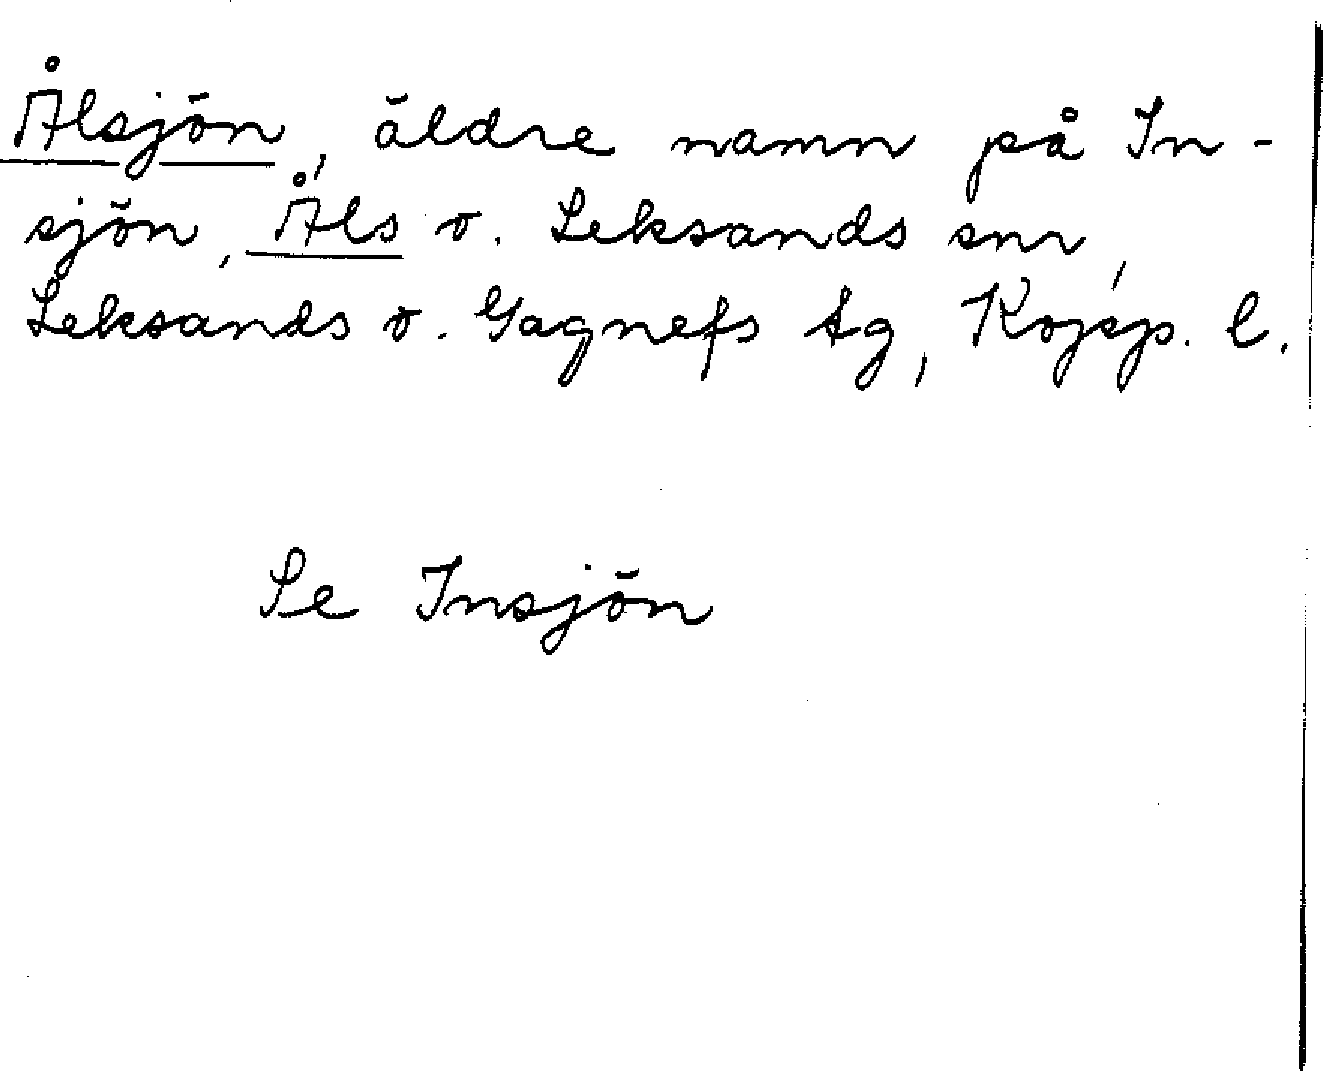 Ålsjön, äldre namn på In-
sjön, Åls o. Leksands snr,
Leksands o. Gagnefs tg, Kopp. l.
Se Insjön